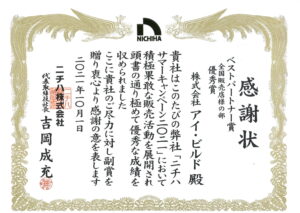 NICHIHA
感謝状
ベストパートナー賞
全国販売店様の部
優秀賞
株式会社 アイ・ビルド 殿
貴社はこのたびの弊社「ニチハ
サマーキャンペーン二〇二一」において
積極果敢な販売活動を展開され
頭書の通り極めて優秀な成績を
収められました
ここに貴社のご尽力に対し副賞を
贈り衷心より感謝の意を表します
二〇二一年十月一日
ニチハ株式会社
代表取締役社長 吉岡成充